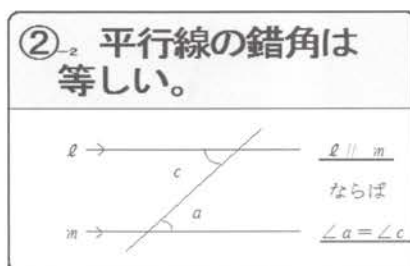 ②-2 平行線の錯角は
等しい。
ℓ
c
ℓ // m
ならば
a
m
∠a=∠c